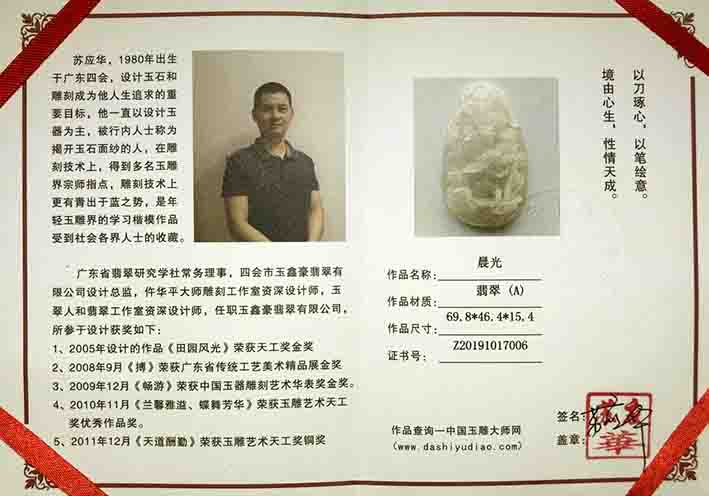 苏应华，1980年出生
于广东四会，设计玉石和
雕刻成为他人生追求的重
要目标，他一直以设计玉
器为主，被行内人士称为
揭开玉石面纱的人，在雕
刻技术上，得到多名玉雕
界宗师指点，雕刻技术上
更有青出于蓝之势，是年
轻玉雕界的学习楷模作品
受到社会各界人士的收藏。
广东省翡翠研究学社常务理事，四会市玉鑫豪翡翠有
限公司设计总监，仵华平大师雕刻工作室资深设计师，玉
翠人和翡翠工作室资深设计师，任职玉鑫豪翡翠有限公司，
所参与设计获奖如下：
1、2005年设计的作品《田园风光》荣获天工奖金奖
2、2008年9月《搏》荣获广东省传统工艺美术精品展金奖
3、2009年12月《畅游》荣获中国玉器雕刻艺术华表奖金奖。
4、2010年11月《兰馨雅溢、蝶舞芳华》荣获玉雕艺术天工
奖优秀作品奖。
5、2011年12月《天道酬勤》荣获玉雕艺术天工奖铜奖
以刀琢心，以笔绘意。
境由心生，性情天成。
作品名称：晨光
作品材质：翡翠 (A)
作品尺寸：69.8*46.4*15.4
证书号：Z20191017006
作品查询—中国玉雕大师网
(www.dashiyudiao.com)
签名：
盖章：